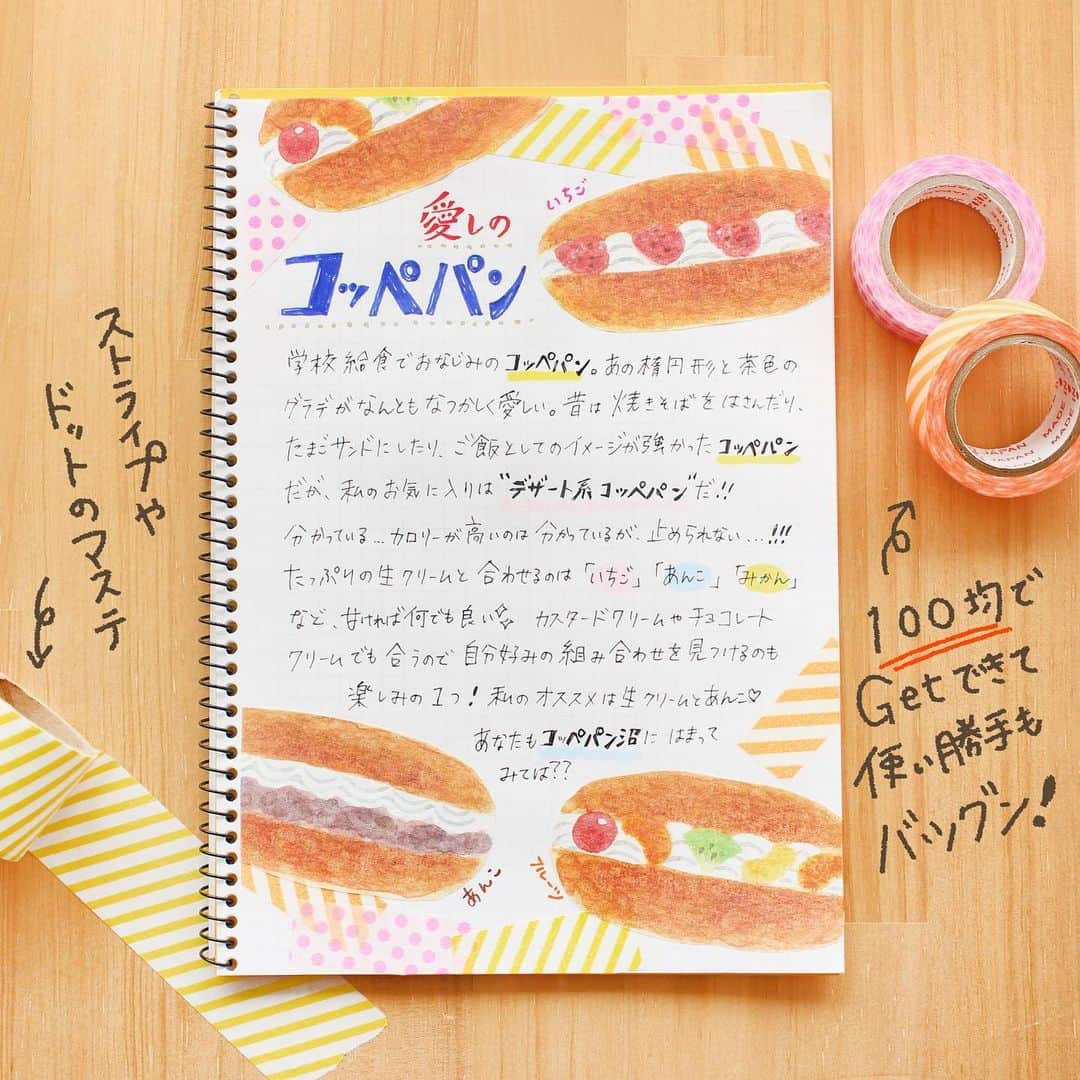 愛しの
コッペパン
いちご
学校給食でおなじみのコッペパン。あの楕円形と茶色の
グラデがなんともなつかしく愛しい。昔は焼きそばをはさんだり、
たまごサンドにしたり、ご飯としてのイメージが強かったコッペパン
だが、私のお気に入りは"デザート系コッペパン"だ!!
分かっている...カロリーが高いのは分かっているが、止められない...!!!
たっぷりの生クリームと合わせるのは「いちご」「あんこ」「みかん」
など、甘ければ何でも良い カスタードクリームやチョコレート
クリームでも合うので自分好みの組み合わせを見つけるのも
楽しみの1つ!私のオススメは生クリームとあんこ♡
あなたもコッペパン沼にはまって
みては??
あんこ
フルーツ
ストライプや
ドットのマステ
100均で
Getできて
使い勝手も
バツグン!
MADE
JAPAN